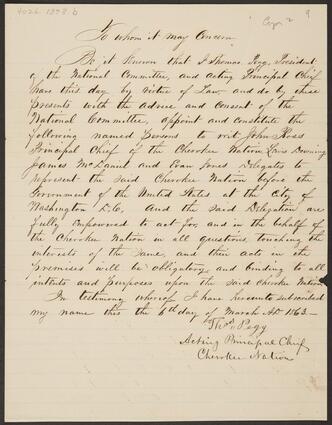 4026.1378 b
Copy 2
9
To whom it may Concern
Be it known that I Thomas Pegg, President
of the National Committee, and acting Principal Chief
have this day by Virtue of Law, and do by these
presents with the advice and Consent of the
National Committee, appoint and constitute the
following named persons to wit, John Ross
Principal Chief of the Cherokee Nation, Lewis Downing
James McDaniel and Evan Jones Delegates to
represent the Said Cherokee Nation before the
Government of the United States at the City of
Washington D.C, And the said Delegation are
fully empowered to act for, and in the behalf of
the Cherokee Nation in all questions touching the
interests of the Same, and their acts in the
premises will be obligatory and binding to all
intents and purposes upon the said Cherokee Nation
In testimony whereof I have hereunto subscribed
my name this the 6th day of March AD 1863 —
Thos Pegg
Acting Principal Chief
Cherokee Nation